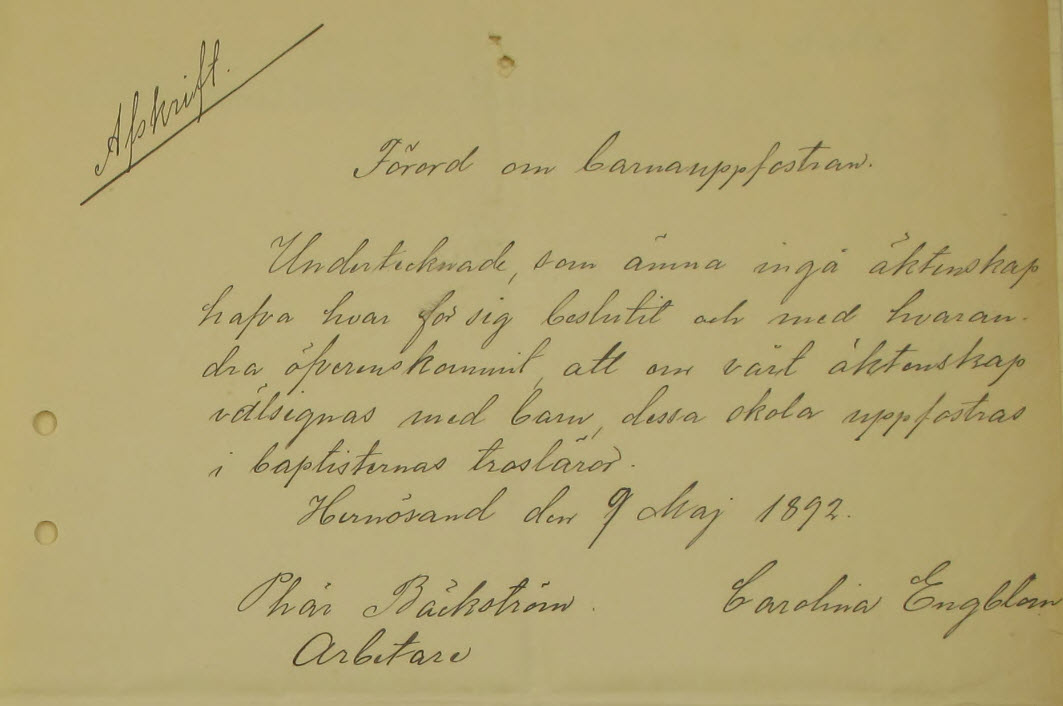 Afskrift.
Förord om barnauppfostran.
Undertecknade, som ämna ingå äktenskap
hafva hvar för sig beslutit och med hvaran-
dra öfverenskommit, att om vårt äktenskap
välsignas med barn, dessa skola uppfostras
i baptisternas trosläror.
Hernösand den 9 Maj 1892.
Phär Bäckström. Carolina Engblom
Arbetare